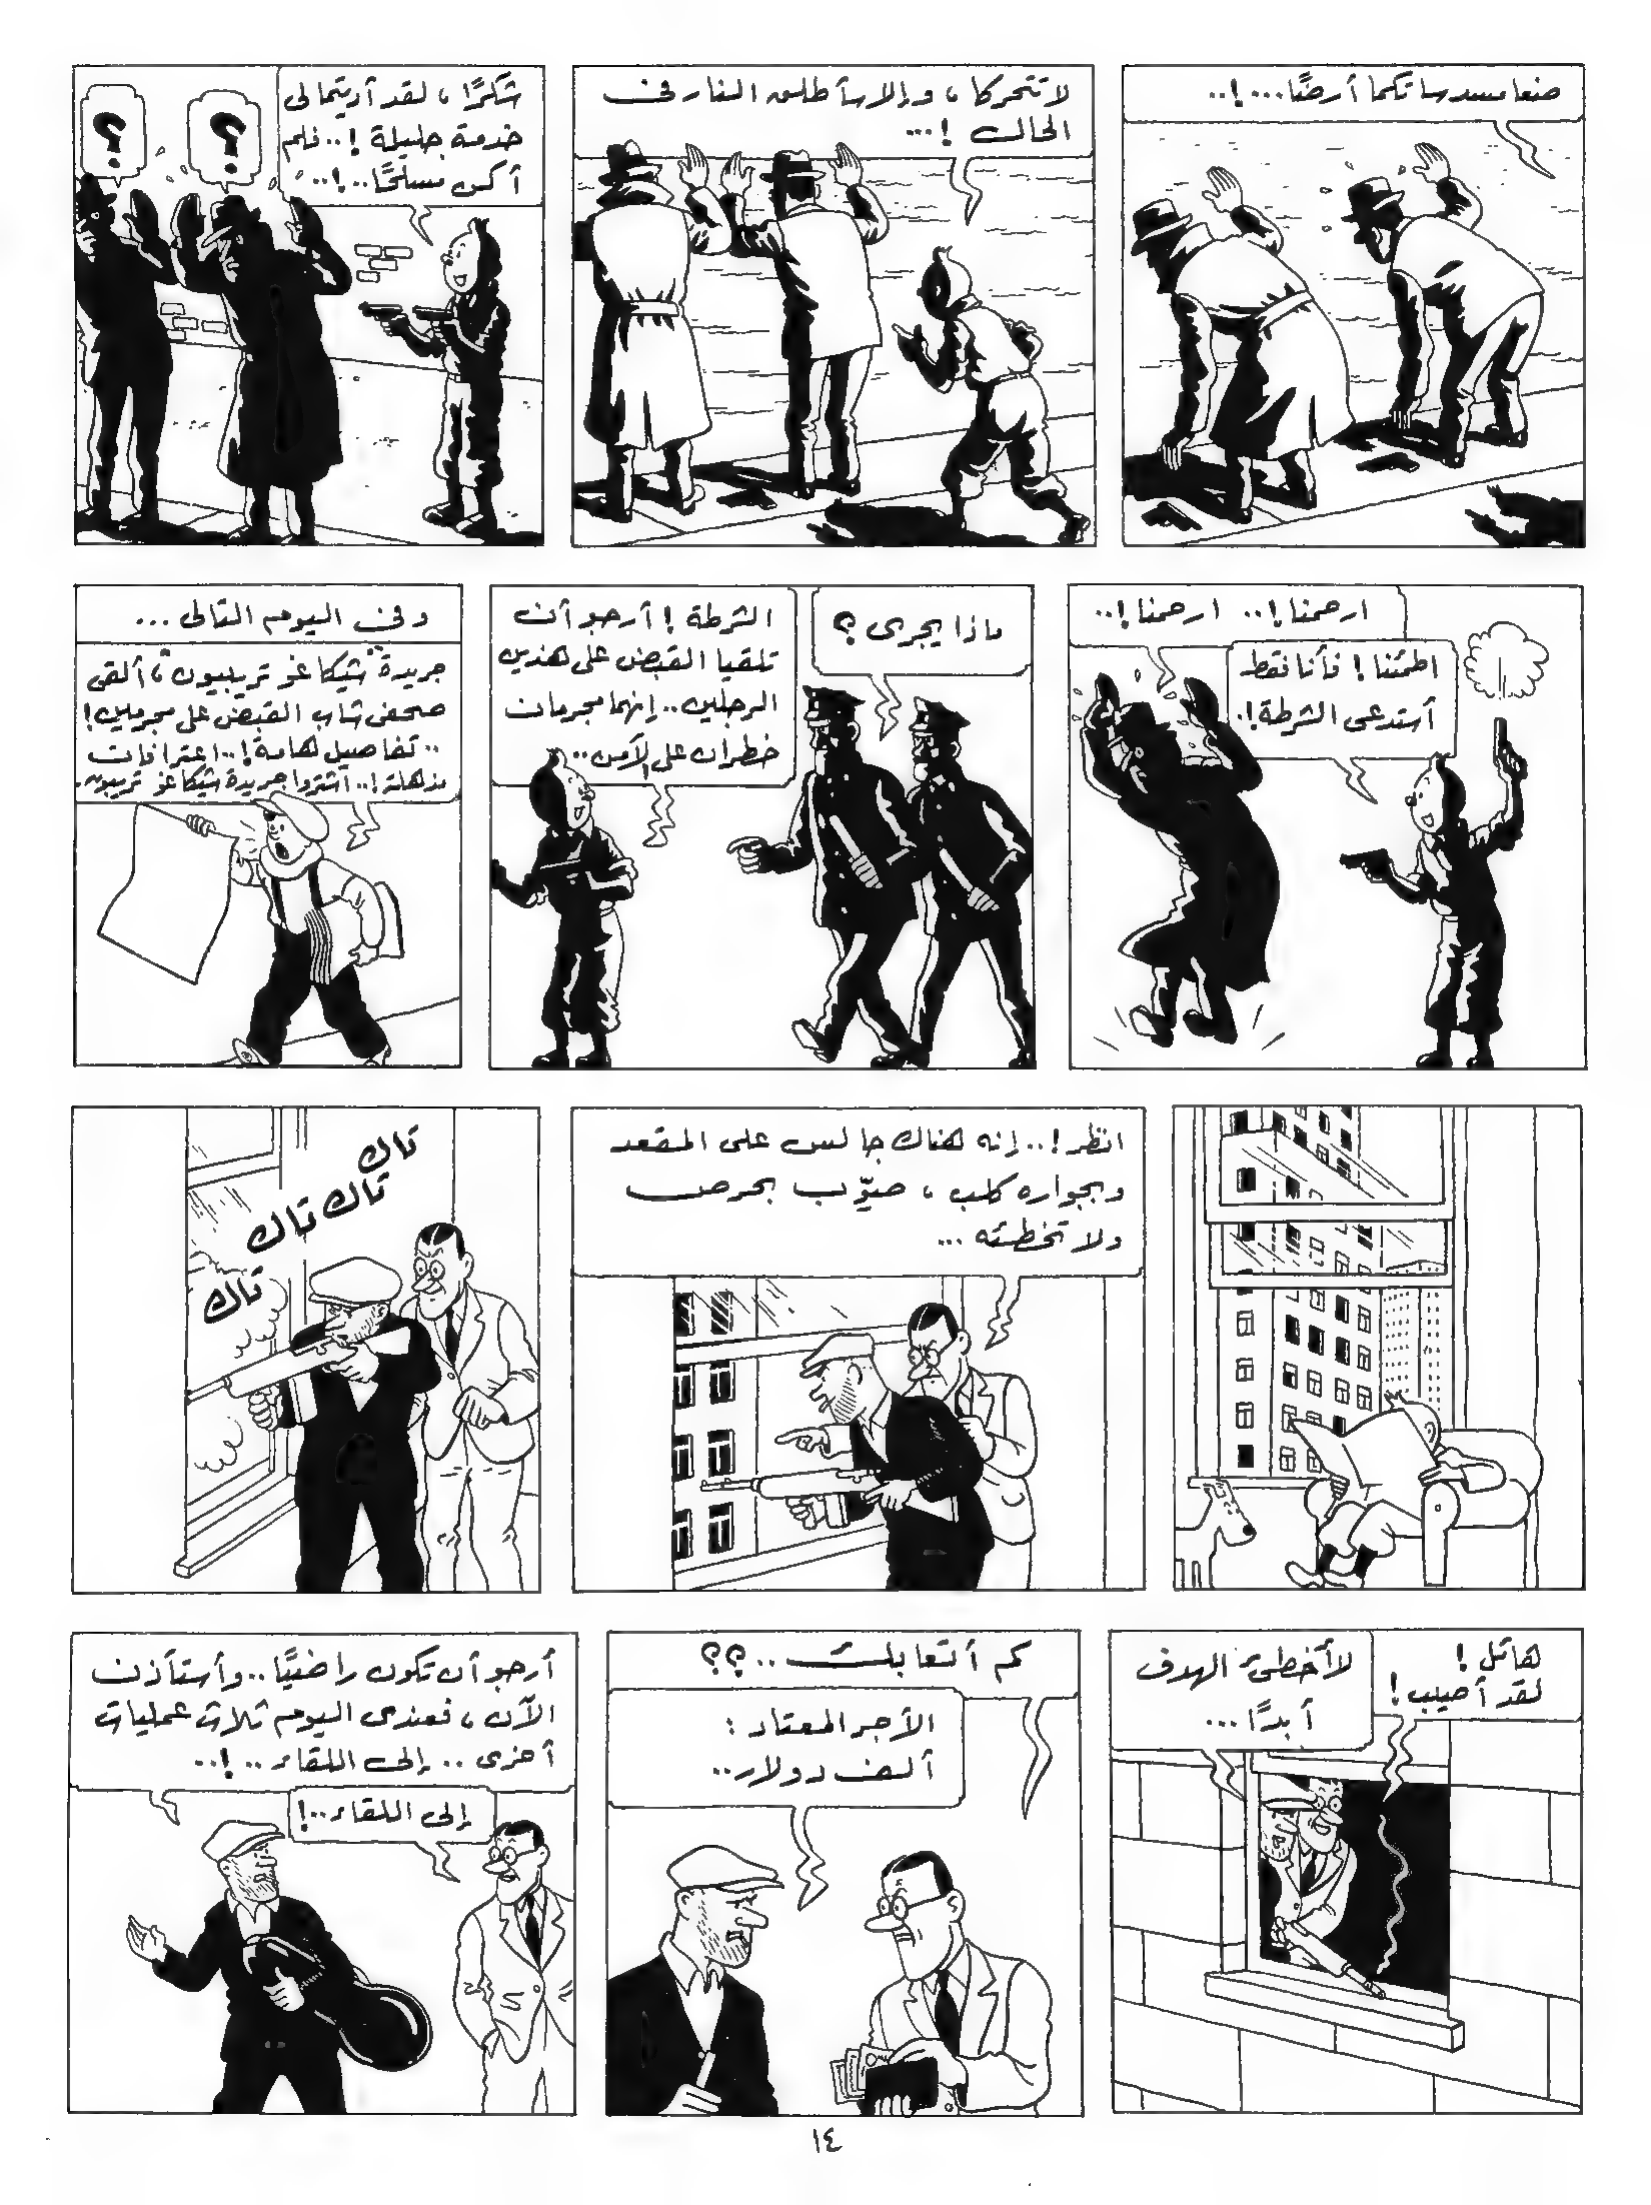 ضعا مسدساتكما أرضًا...!..
لا تتحركا، وإلا سأطلق النار في
الحال !...
شكرًا، لقد أديتما لى
خدمة جليلة !.. فلم
أكن مسلحًا..!..
؟
؟
ارحمنا!.. ارحمنا!..
اطمئنا! فأنا فقط
أستدعى الشرطة!.
ماذا يجرى ؟
الشرطة ! أرجو أن
تلقيا القبض على هذين
الرجلين.. إنهما مجرمان
خطران على الأمن..
وفى اليوم التالى ...
جريدة "شيكاغو تريبيون"، ألقى
صحفى شاب القبض على مجرمين!
.. تفاصيل هامة!.. اعترافات
مذهلة!.. اشتروا جريدة شيكاغو تريبيون.
انظر!.. إنه هناك جالس على المقعد
وبجواره كلب، صوّب بحرص
ولا تخطئه ...
تاك
تاك
تاك
تاك
هائل !
لقد أصيب !
لا أخطىء الهدف
أبدًا ...
كم أتعابك ..؟؟
الأجر المعتاد :
ألف دولار..
أرجو أن تكون راضيًا.. وأستأذن
الآن، فعندى اليوم ثلاث عمليات
أخرى .. إلى اللقاء ..!..
إلى اللقاء..!
١٤